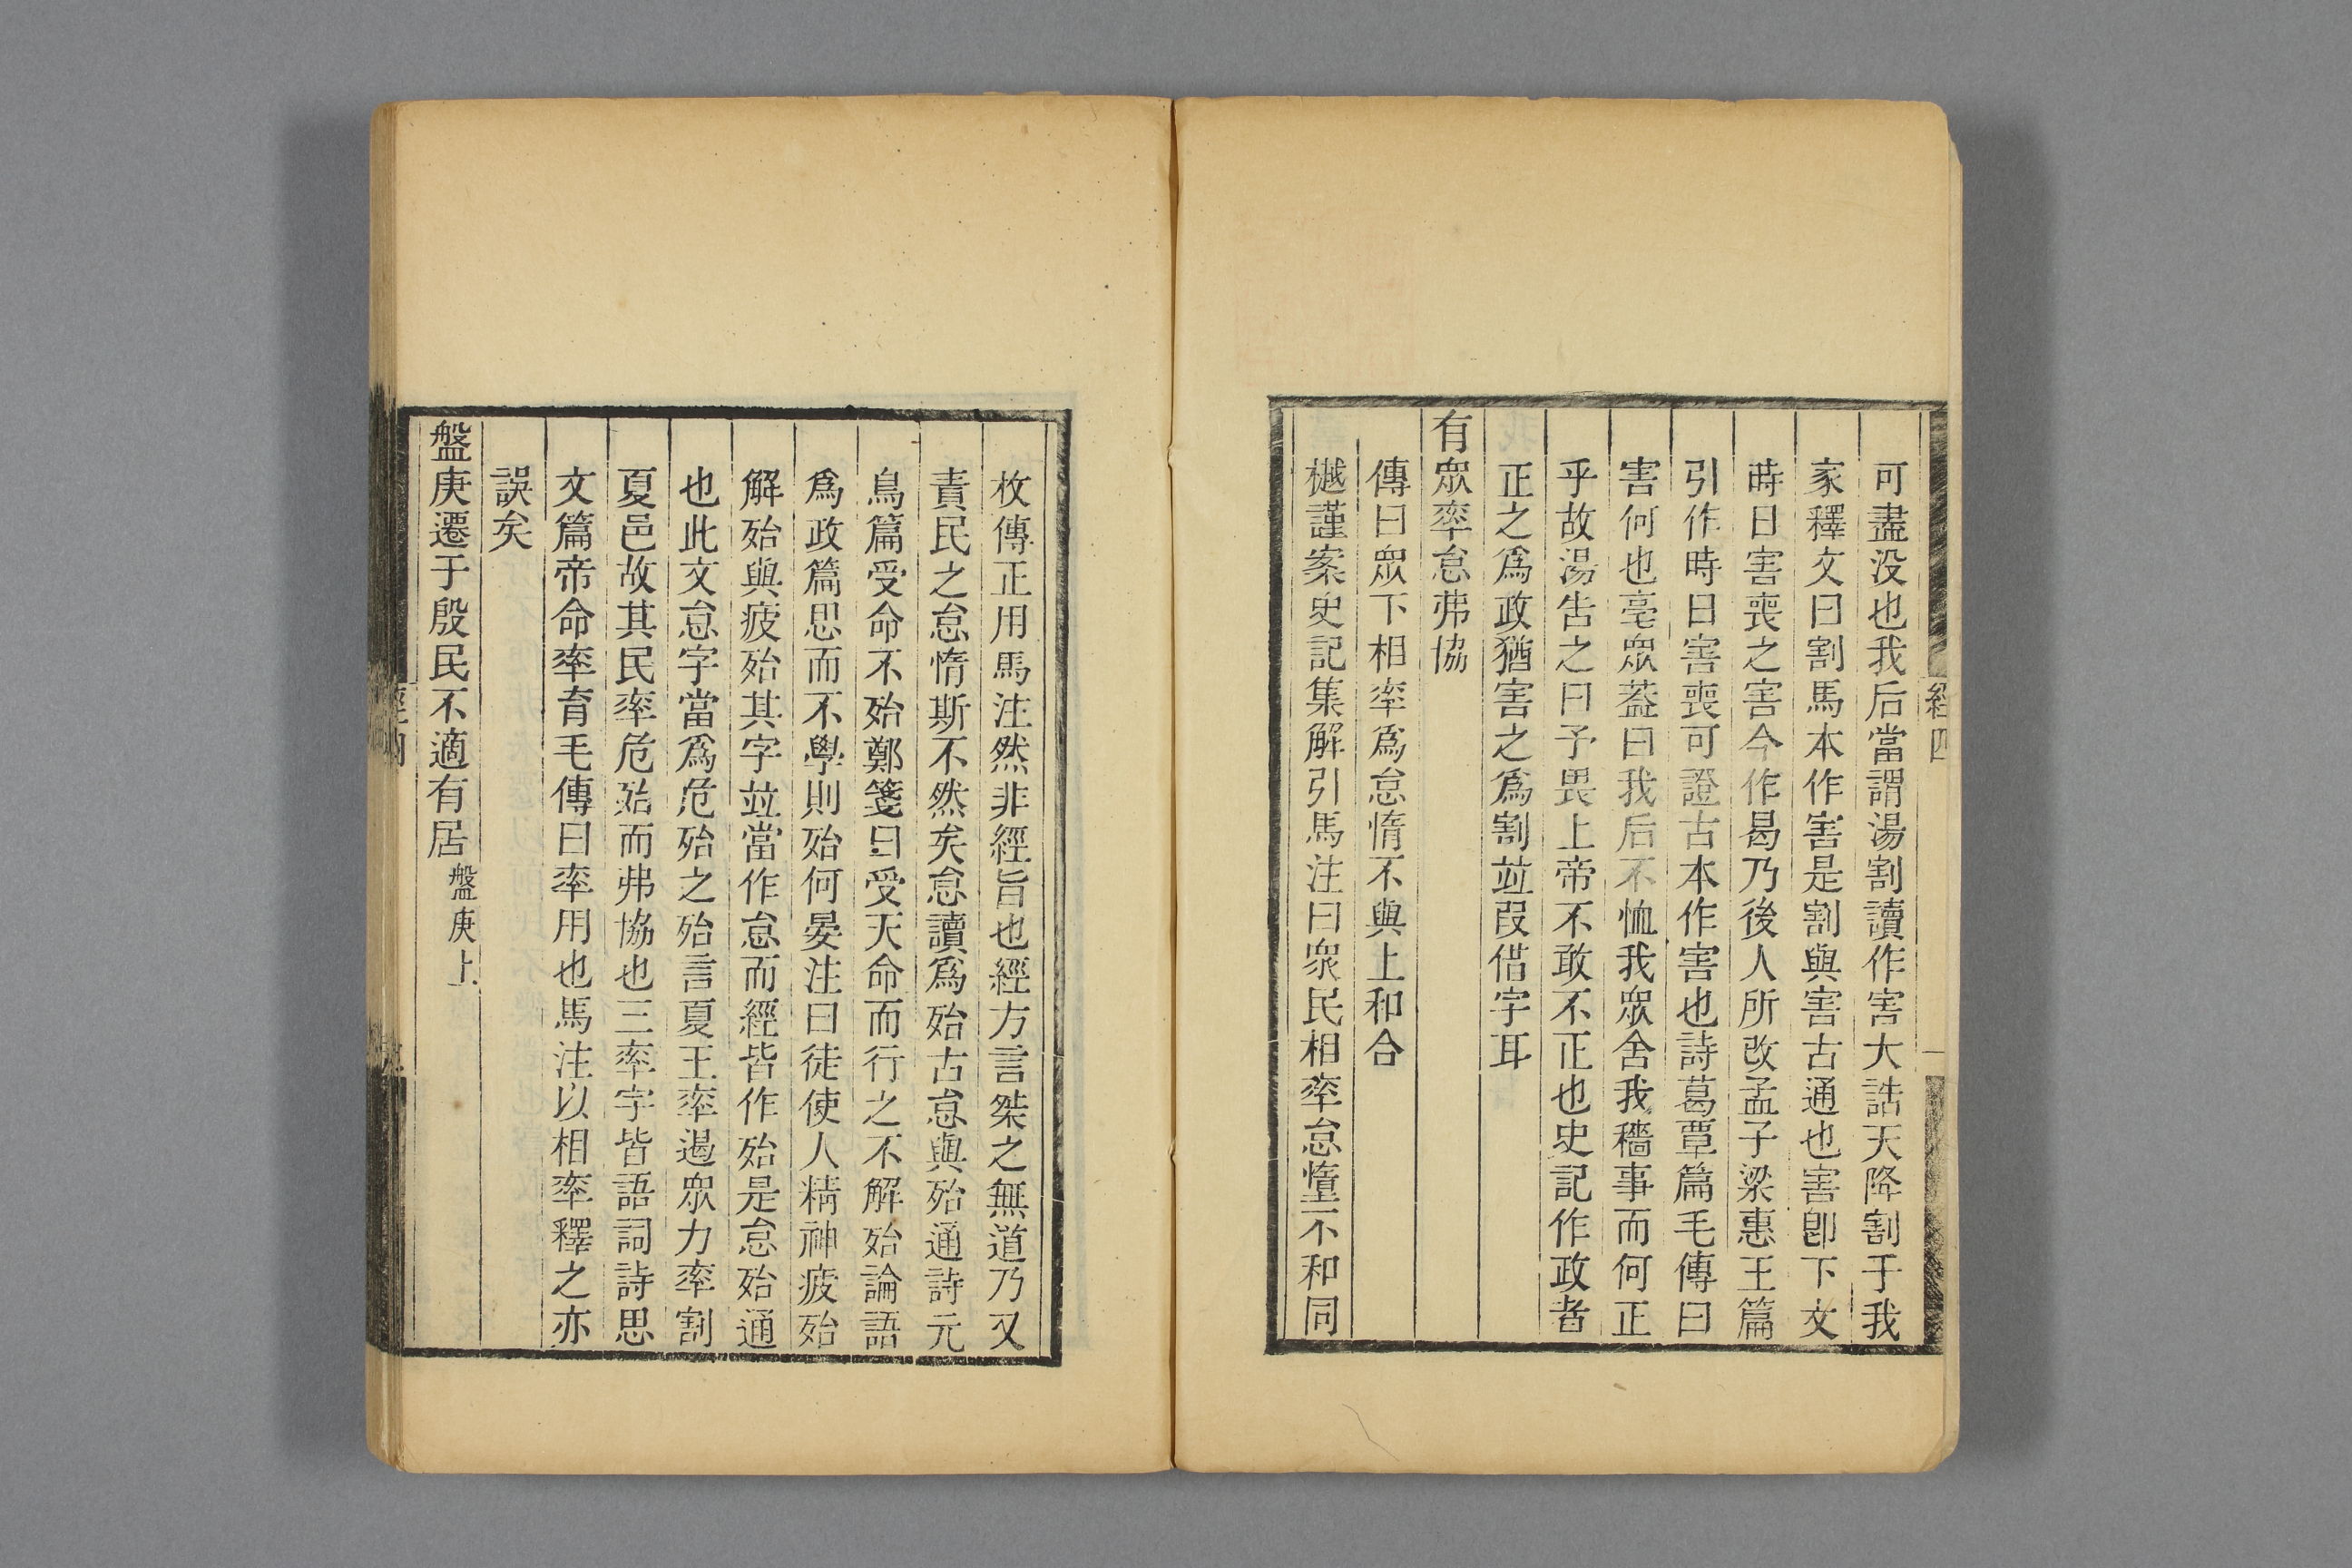 可盡没也我后當謂湯割讀作害大誥天降割于我
家釋文曰割馬本作害是割與害古通也害卽下文
時日害喪之害今作曷乃後人所改孟子梁惠王篇
引作時日害喪可證古本作害也詩葛覃篇毛傳曰
害何也亳眾葢曰我后不恤我眾舍我穡事而何正
乎故湯告之曰予畏上帝不敢不正也史記作政者
正之爲政猶害之爲割竝叚借字耳
有眾率怠弗協
傳曰眾下相率爲怠惰不與上和合
樾謹案史記集解引馬注曰衆民相率怠惰不和同
經四
枚傳正用馬注然非經旨也經方言桀之無道乃又
責民之怠惰斯不然矣怠讀爲殆古怠與殆通詩元
鳥篇受命不殆鄭箋曰受天命而行之不解殆論語
爲政篇思而不學則殆何晏注曰徒使人精神疲殆
解殆與疲殆其字竝當作怠而經皆作殆是怠殆通
也此文怠字當爲危殆之殆言夏王率遏眾力率割
夏邑故其民率危殆而弗協也三率字皆語詞詩思
文篇帝命率育毛傳曰率用也馬注以相率釋之亦
誤矣
盤庚遷于殷民不適有居盤庚上